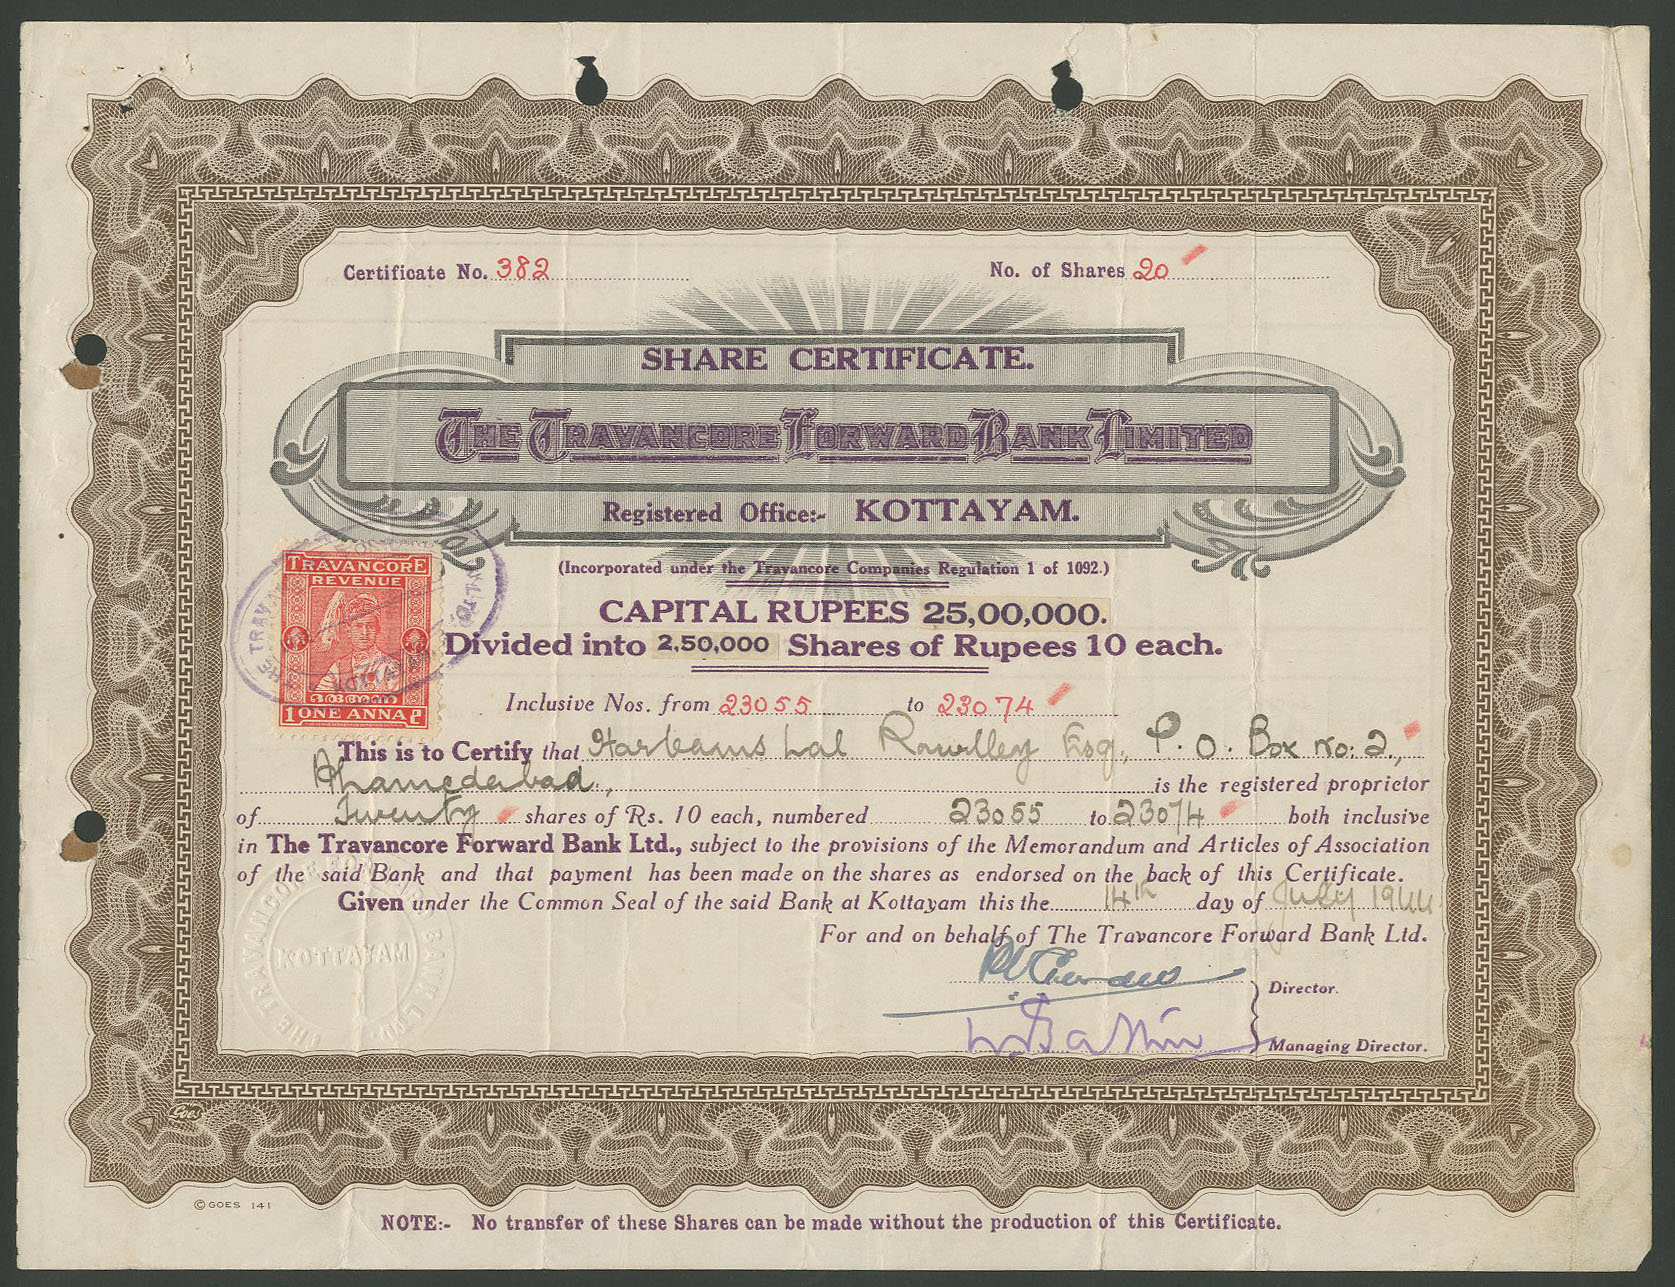 Certificate No. 382
No. of Shares 20
SHARE CERTIFICATE.
THE TRAVANCORE FORWARD BANK LIMITED
Registered Office:- KOTTAYAM.
(Incorporated under the Travancore Companies Regulation 1 of 1092.)
CAPITAL RUPEES 25,00,000.
Divided into 2,50,000 Shares of Rupees 10 each.
TRAVANCORE
REVENUE
1 ONE ANNA
THE TRAV
Inclusive Nos. from 23055 to 23074
This is to Certify that Harbans Lal Esq., P. O. Box No: 2,
Ahamedabad, is the registered proprietor
of Twenty shares of Rs. 10 each, numbered 23055 to 23074 both inclusive
in The Travancore Forward Bank Ltd., subject to the provisions of the Memorandum and Articles of Association
of the said Bank and that payment has been made on the shares as endorsed on the back of this Certificate.
Given under the Common Seal of the said Bank at Kottayam this the 14th day of July 1944
For and on behalf of The Travancore Forward Bank Ltd.
Director.
Managing Director.
THE TRAVANCORE FORWARD BANK LTD.
KOTTAYAM
Goes
© GOES 141
NOTE:- No transfer of these Shares can be made without the production of this Certificate.